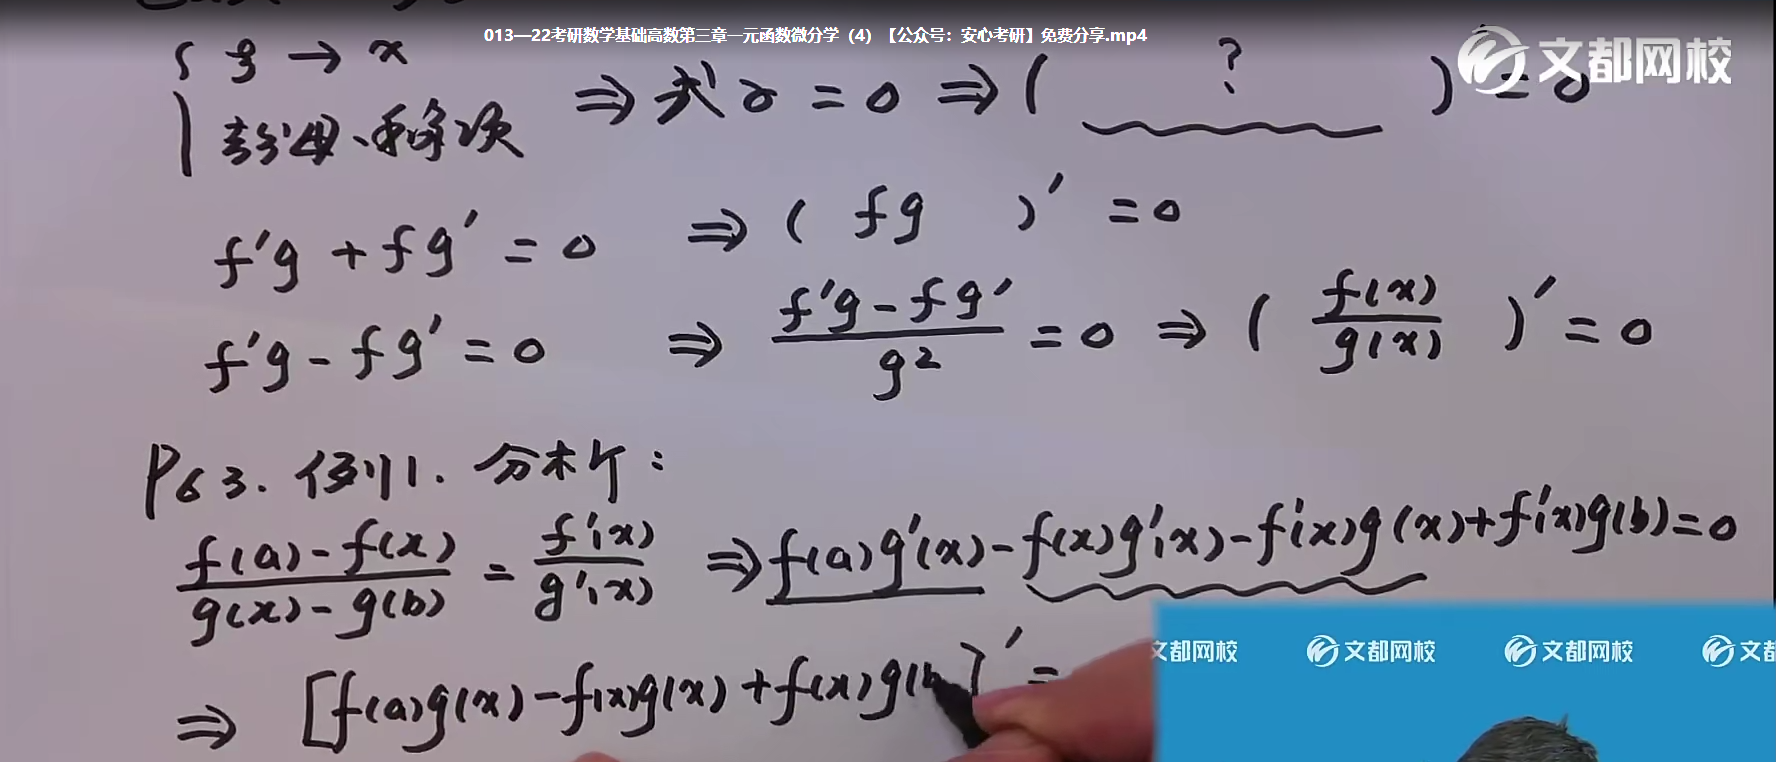 013—22考研数学基础高数第三章一元函数微分学（4）【公众号：安心考研】免费分享.mp4
文都网校
{ ξ → x
去分母、移项
⇒ 式子 = 0 ⇒ ( ? )' = 0
f'g + fg' = 0 ⇒ ( fg )' = 0
f'g - fg' = 0 ⇒ (f'g - fg')/g² = 0 ⇒ ( f(x)/g(x) )' = 0
P63. 例1. 分析：
(f(a) - f(x))/(g(x) - g(b)) = f'(x)/g'(x) ⇒ f(a)g'(x) - f(x)g'(x) - f'(x)g(x) + f'(x)g(b) = 0
⇒ [f(a)g(x) - f(x)g(x) + f(x)g(b]' =
文都网校 文都网校 文都网校 文都